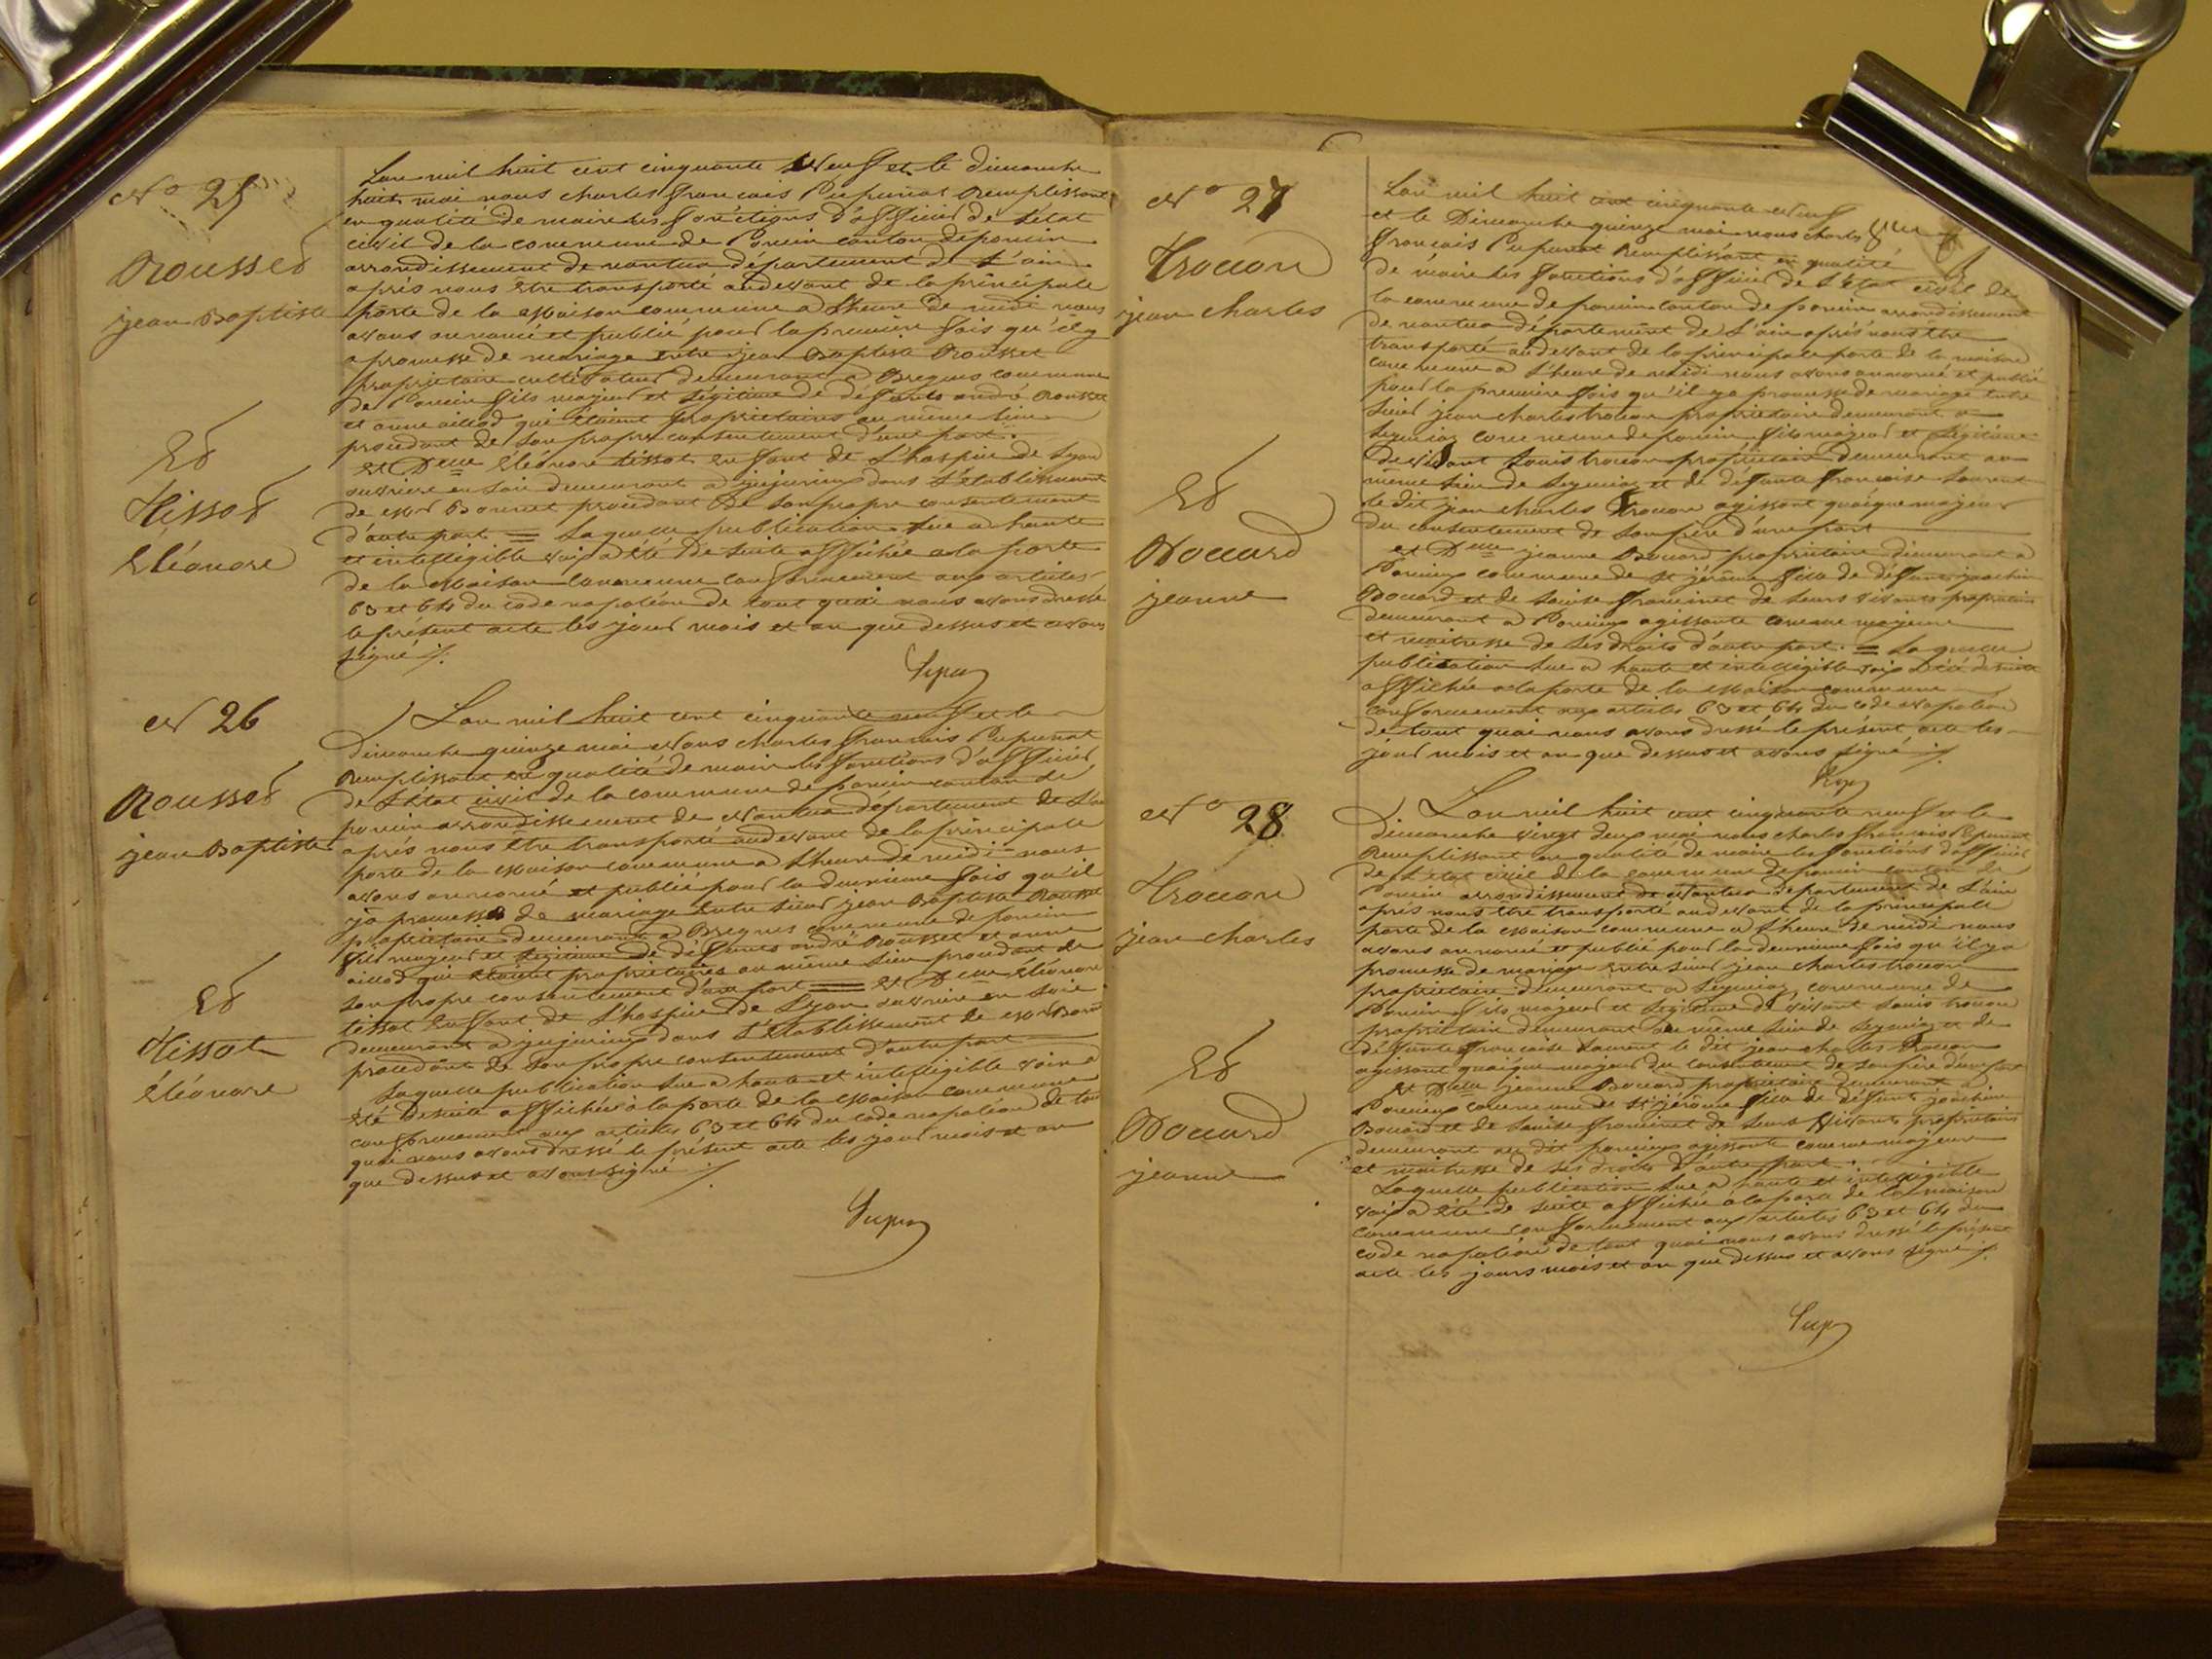 No 25
Rousset
jean Baptiste
Et
Tissot
Eléonore
L'an mil huit cent cinquante Neuf et le dimanche
huit mai nous charles francois Pupunat Remplissant
en qualité de maire les fonctions d'officier de l'état
civil de la commune de Poncin canton de poncin
arrondissement de nantua département de l'ain
après nous être transporté audevant de la principale
porte de la Maison commune a l'heure de midi nous
avons annoncé et publié pour la première fois qu'il y
a promesse de mariage entre jean Baptiste Rousset
propriétaire cultivateur demeurant a Breignes commune
de Poncin fils majeur et légitime de défunts andré Rousset
et anne aillod qui étaient propriétaires au même lieu
procédant de son propre consentement d'une part.
et Delle Eléonore tissot enfant de l'hospice de Lyon
ouvrière en soie demeurant a jujurieux dans l'établissement
de Mr Bonnet procédant de son propre consentement
d'autre part = Laquelle publication lue a haute
et intelligible voix a été de suite affichée a la porte
de la Maison commune conformement aux articles
63 et 64 du code napoléon de tout quoi nous avons dressé
le présent acte les jour mois et an que dessus et avons
signé ./.
Pupu
N 26
Rousset
jean Baptiste
Et
Tissot
Eléonore
L'an mil huit cent cinquante neuf et le
dimanche quinze mai Nous charles francois Pupunat
Remplissant en qualité de maire les fonctions d'officier
de l'état civil de la commune de poncin canton de
poncin arrondissement de Nantua département de l'ain
après nous être transporté audevant de la principale
porte de la Maison commune a l'heure de midi nous
avons annoncé et publié pour la deuxieme fois qu'il
y a promesse de mariage entre sieur jean Baptiste Rousset
propriétaire demeurant a Breignes commune de poncin
fils majeur et légitime de défunts andré Rousset et anne
aillod qui étaient propriétaires au même lieu procédant de
son propre consentement d'une part = et Delle Eléonore
tissot enfant de l'hospice de Lyon ouvrière en soie
demeurant a jujurieux dans l'établissement de Mr Bonnet
procédant de son propre consentement d'autre part
Laquelle publication lue a haute et intelligible voix a
été de suite affichée à la porte de la Maison commune
conformement aux articles 63 et 64 du code napoléon de tout
quoi nous avons dressé le présent acte les jour mois et an
que dessus et avons signé ./.
Pupu
No 27
Trocon
jean charles
Et
Bouard
jeanne
L'an mil huit cent cinquante Neuf
et le Dimanche quinze mai nous charles
francois Pupunat Remplissant en qualité
de maire les fonctions d'officier de l'état civil de
la commune de poncin canton de poncin arrondissement
de nantua département de l'ain après nous être
transporté audevant de la principale porte de la maison
commune a l'heure de midi nous avons annoncé et publié
pour la première fois qu'il y a promesse de mariage entre
sieur jean charles trocon propriétaire demeurant a
Leymiaz commune de poncin fils majeur et légitime
de vivant Louis trocon propriétaire demeurant au
même lieu de Leymiaz et de défunte francoise Laurent
le dit jean charles Trocon agissant quoique majeur
du consentement de son père d'une part
et Delle jeanne Bouard propriétaire demeurant a
Poncieux commune de St jérôme fille de défunt joachim
Bouard et de Louise frominet de leurs vivants propriétaires
demeurant a Poncieux agissante comme majeure
et maitresse de ses droits d'autre part. = Laquelle
publication lue a haute et intelligible voix a été de suite
affichée a la porte de la Maison commune
conformement aux articles 63 et 64 du code Napoléon
de tout quoi nous avons dressé le présent acte les
jour mois et an que dessus et avons signé ./.
Pup
No 28
Trocon
jean charles
Et
Bouard
jeanne
L'an mil huit cent cinquante neuf et le
dimanche vingt deux mai nous charles francois Pupunat
Remplissant en qualité de maire les fonctions d'officier
de l'état civil de la commune de poncin canton de
Poncin arrondissement de Nantua département de l'ain
après nous être transporté audevant de la principale
porte de la Maison commune a l'heure de midi nous
avons annoncé et publié pour la deuxieme fois qu'il y a
promesse de mariage entre sieur jean charles trocon
propriétaire demeurant a Leymiaz commune de
Poncin fils majeur et légitime de vivant Louis trocon
propriétaire demeurant au même lieu de Leymiaz et de
défunte francoise Laurent le dit jean charles Trocon
agissant quoique majeur du consentement de son père d'une part
et Delle jeanne Bouard propriétaire demeurant a
Poncieux commune de St jérôme fille de défunt joachim
Bouard et de Louise frominet de leurs vivants propriétaires
demeurant au dit poncieux agissante comme majeure
et maitresse de ses droits d'autre part.
Laquelle publication lue a haute et intelligible
voix a été de suite affichée à la porte de la maison
commune conformement aux articles 63 et 64 du
code napoléon de tout quoi nous avons dressé le présent
acte les jours mois et an que dessus et avons signé ./.
Pup